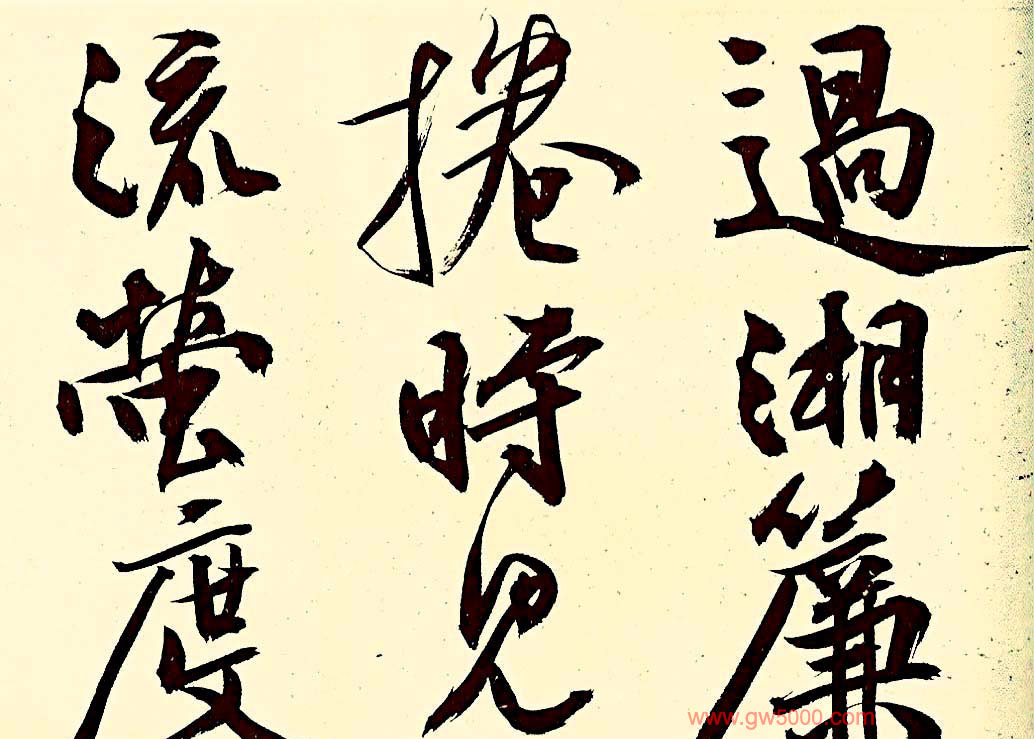 過湘簾
捲時見
流螢度
www.gw5000.com